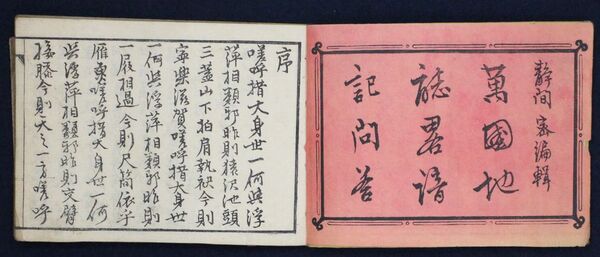 静間密編輯
萬國地
誌畧諳
記問答
序
嗟呼措大身世一何與浮
萍相類邪昨則猿沢池頭
三葢山下拍肩執袂今則
寧樂滋賀嗟呼措大身世
一何與浮萍相類邪昨則
一屐相過今則尺簡依乎
雁東嗟呼措大身世一何
與浮萍相類邪昨則交臂
接膝今則天之一方嗟呼